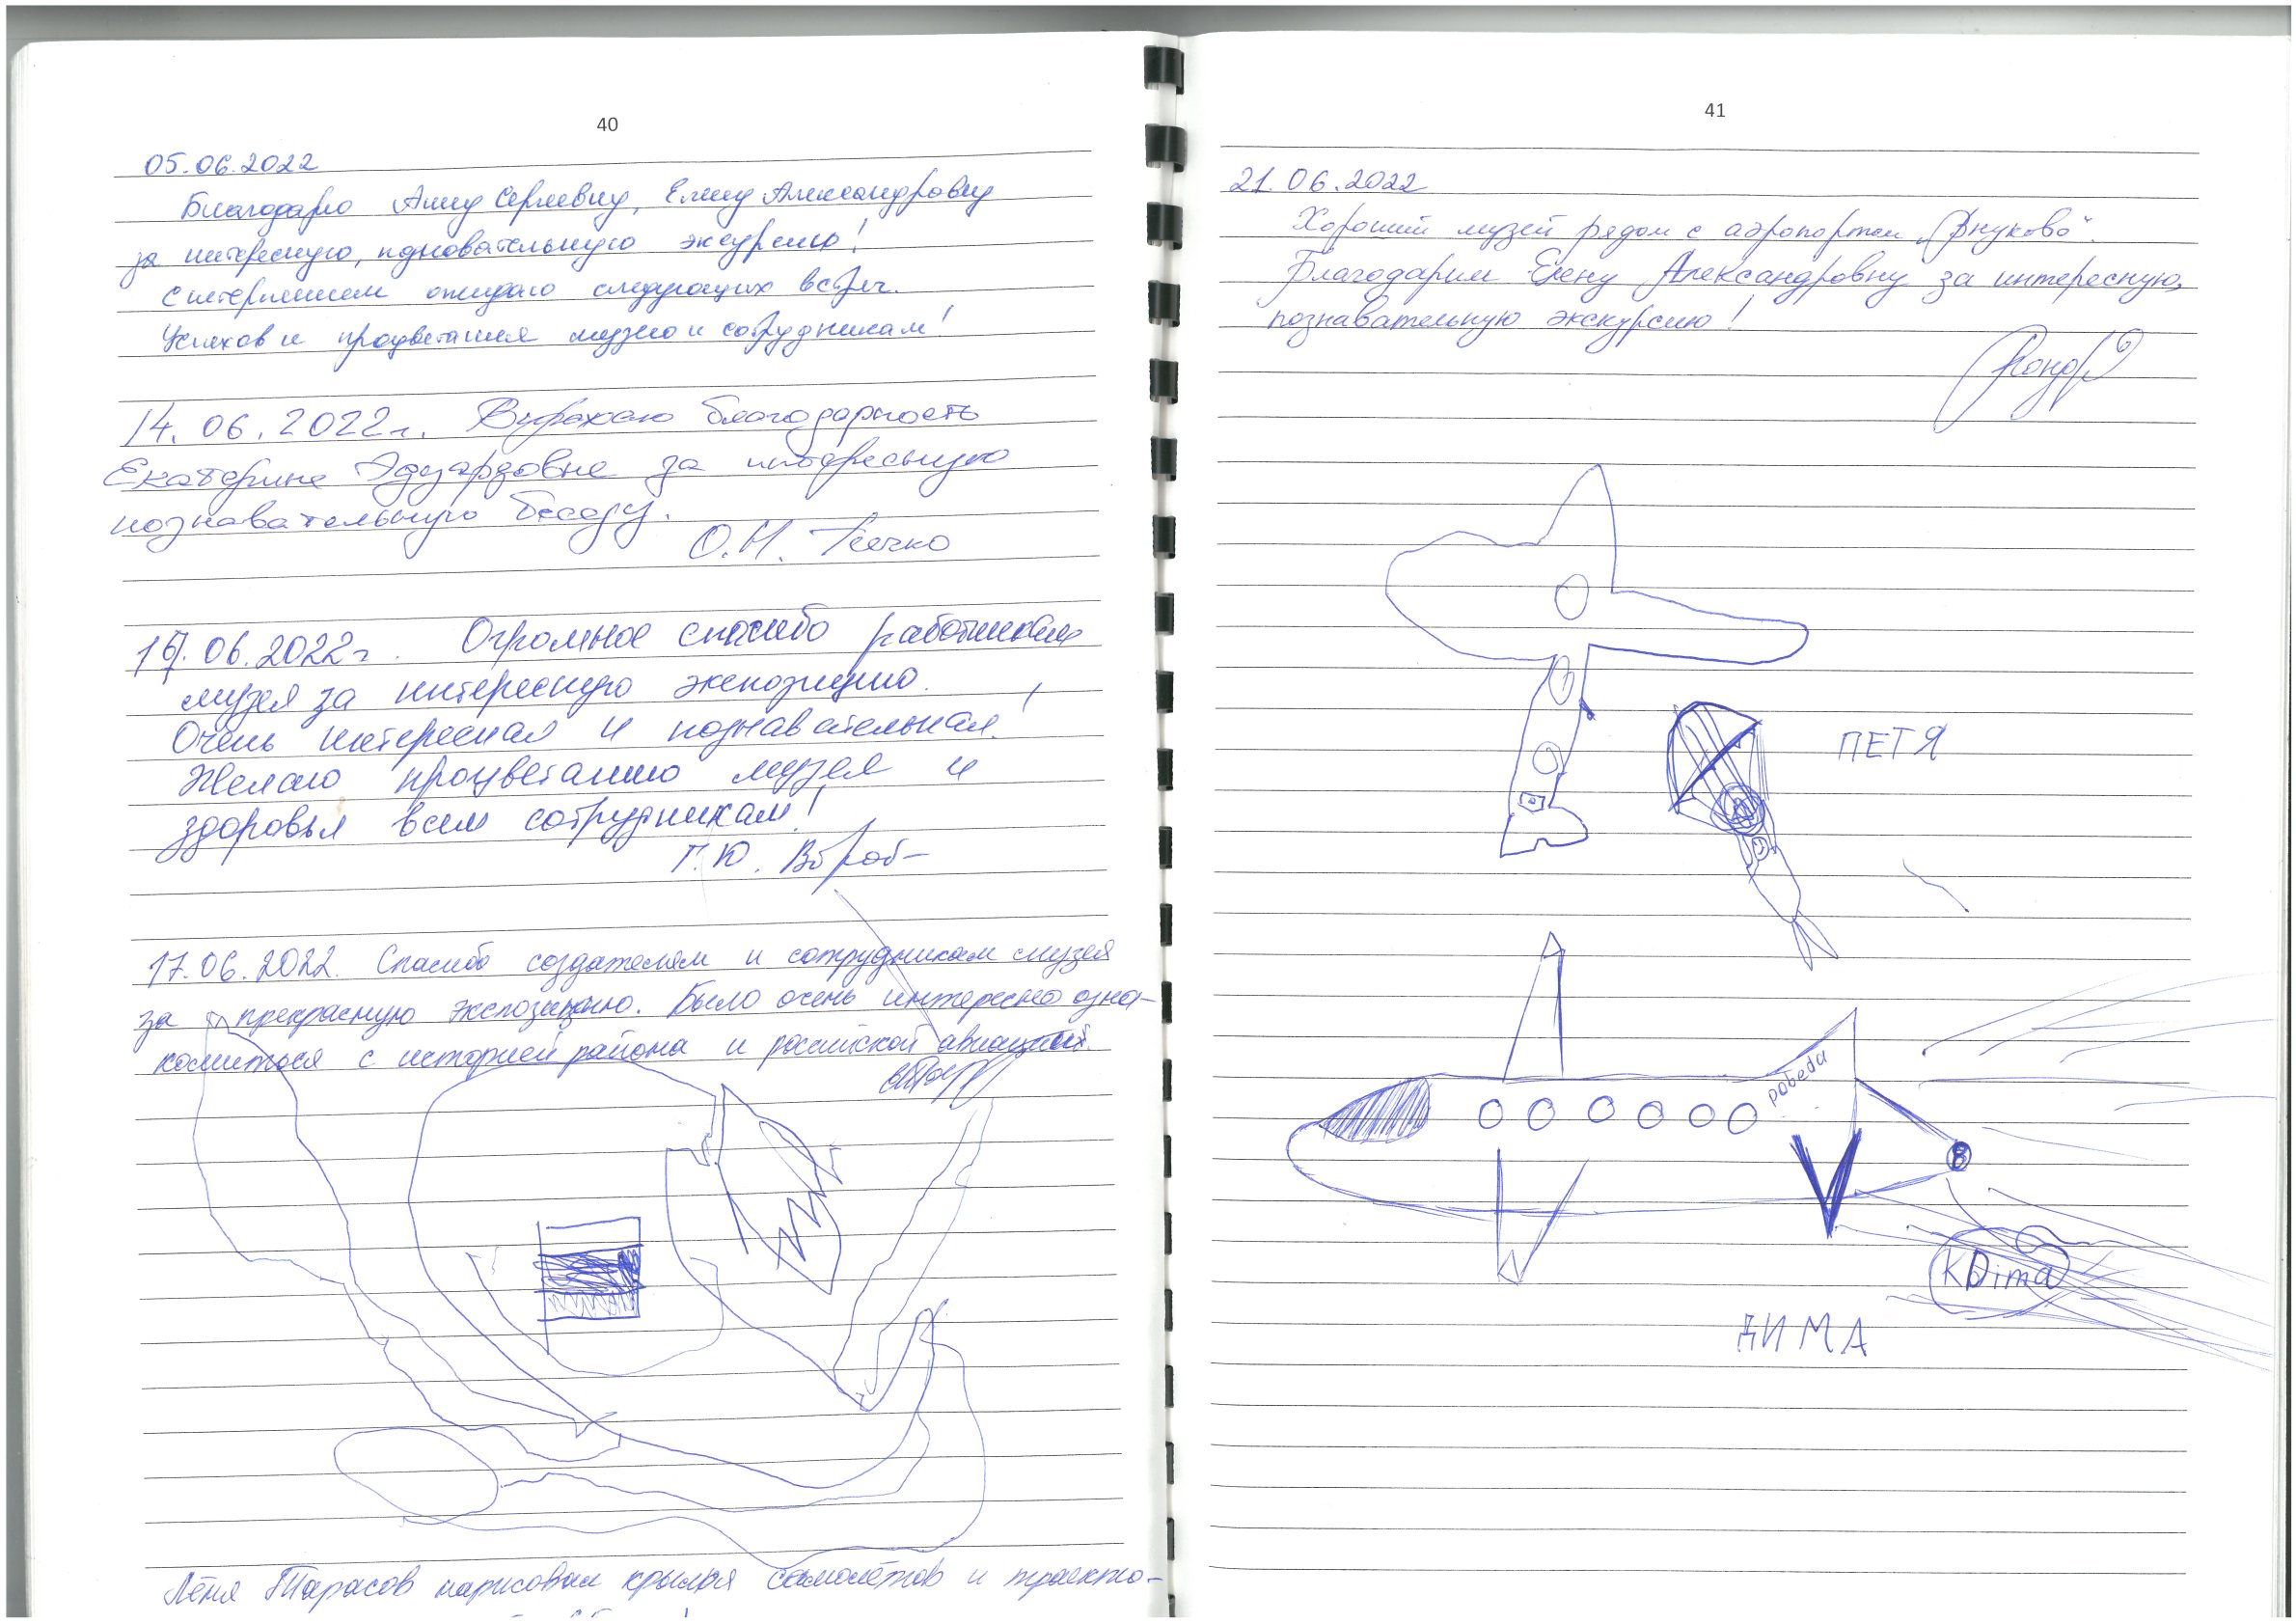 40
05.06.2022
Благодарю Анну Сергеевну, Елену Александровну
за интересную, познавательную экскурсию!
С нетерпением ожидаю следующих встреч.
Успехов и процветания музею и сотрудникам!
14.06.2022г. Выражаю благодарность
Екатерине Эдуардовне за интересную
познавательную беседу.
О.Н.
16.06.2022г. Огромное спасибо работникам
музея за интересную экспозицию.
Очень интересная и познавательная!
Желаю процветанию музея и
здоровья всем сотрудникам!
Г.Ю.
17.06.2022. Спасибо создателям и сотрудникам музея
за прекрасную экспозицию. Было очень интересно озна-
комиться с историей района и российской авиации.
Лёня Тарасов нарисовал крылья самолётов и траекто-
41
21.06.2022
Хороший музей рядом с аэропортом „Внуково“.
Благодарим Елену Александровну за интересную,
познавательную экскурсию!
ПЕТЯ
pobeda
KDima
ДИМА